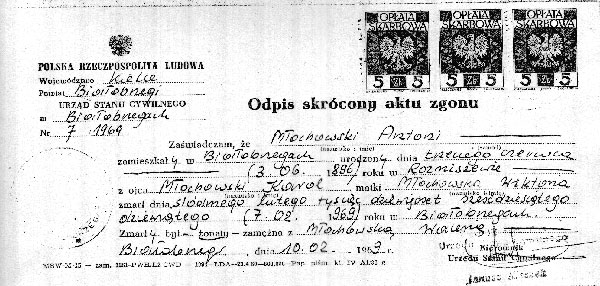 OPŁATA SKARBOWA 5 ZŁ 5
OPŁATA SKARBOWA 5 ZŁ 5
OPŁATA SKARBOWA 5 ZŁ 5
POLSKA RZECZPOSPOLITA LUDOWA
Województwo Kielce
Powiat Białobrzegi
URZĄD STANU CYWILNEGO
w Białobrzegach
Nr 7/1969
Odpis skrócony aktu zgonu
Zaświadczam, że Młochowski Antoni
(nazwisko i imię)
zamieszkały w Białobrzegach urodzony dnia trzeciego czerwca
(3.06. 1886) roku w Rozniszewie
z ojca Młochowski Karol matki Młochowska Wiktoria
zmarł dnia siódmego lutego tysiąc dziewięćset sześćdziesiątego
dziewiątego (7.02. 1969) roku w Białobrzegach.
Zmarły był żonaty - zamężna z Młochowską
Białobrzegi, dnia 10.02. 19
Kierownik
Urzędu Stanu Cywilnego